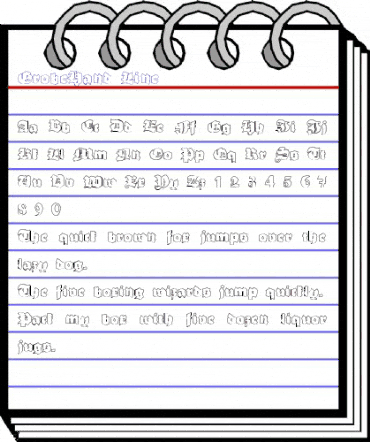 GrobeHand Line
Aa Bb Cc Dd Ee Ff Gg Hh Ii Jj
Kk Ll Mm Nn Oo Pp Qq Rr Ss Tt
Uu Vv Ww Xx Yy Zz 1 2 3 4 5 6 7
8 9 0
The quick brown fox jumps over the
lazy dog.
The five boxing wizards jump quickly.
Pack my box with five dozen liquor
jugs.